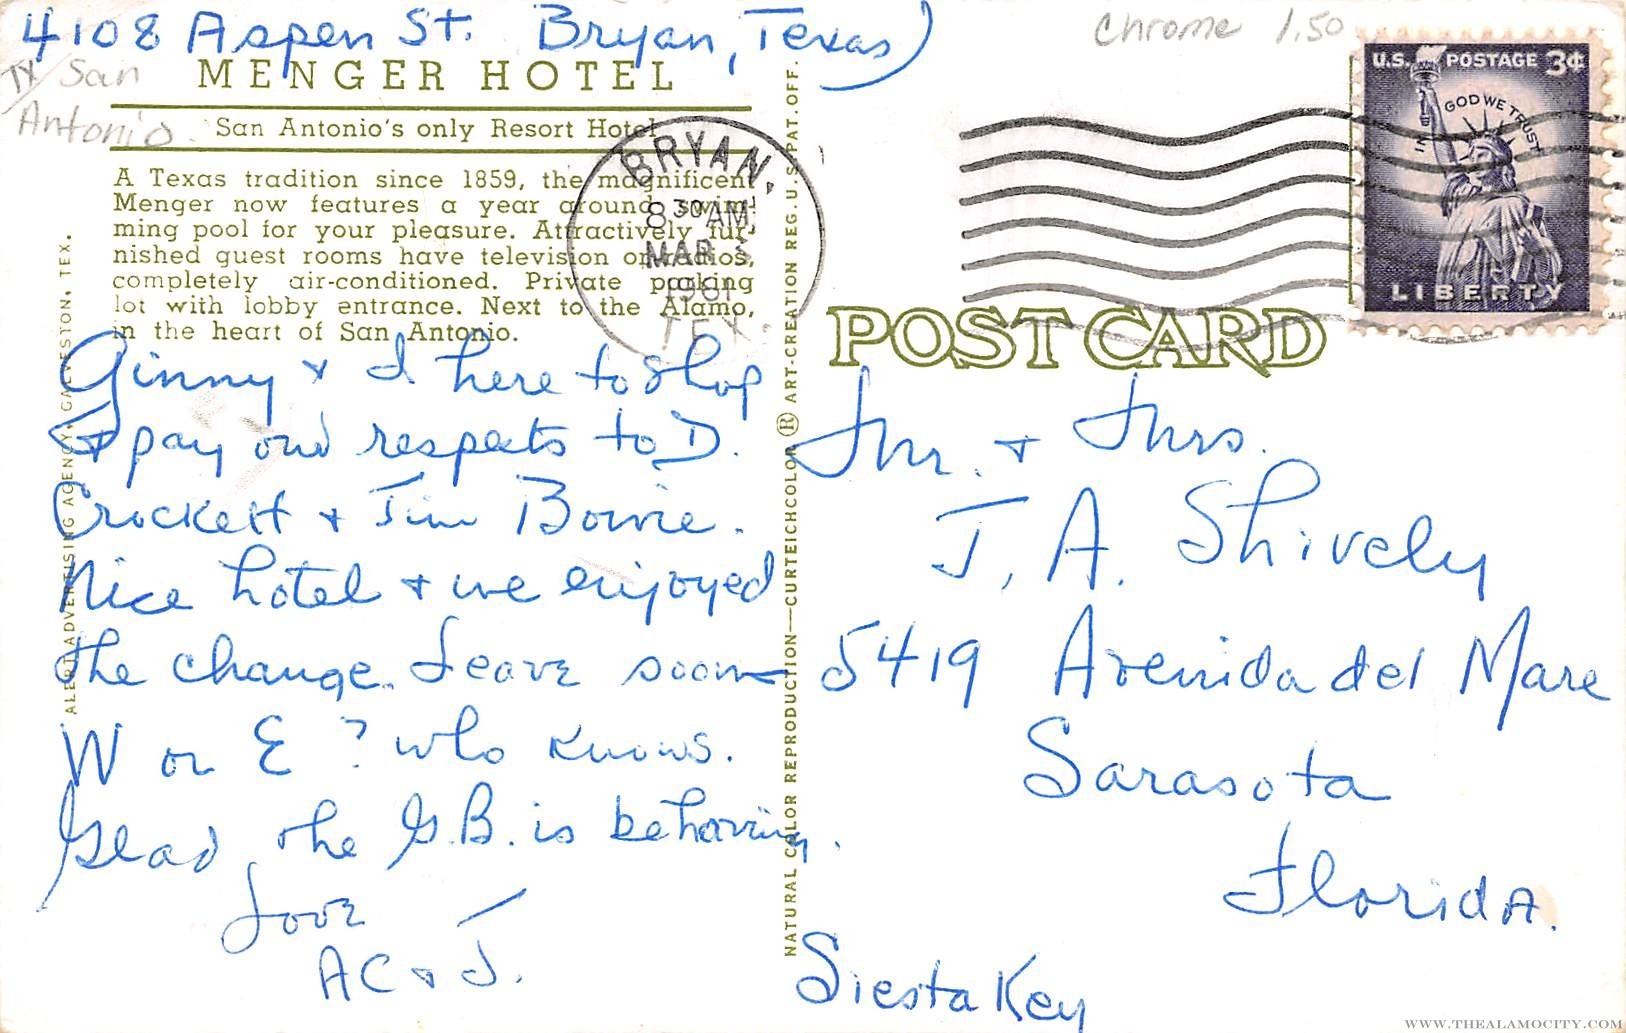 4108 Aspen St. Bryan, Texas)
Chrome 1.50
TX San
Antonio
MENGER HOTEL
San Antonio's only Resort Hotel
A Texas tradition since 1859, the magnificent
Menger now features a year around swim-
ming pool for your pleasure. Attractively fur-
nished guest rooms have television or radios,
completely air-conditioned. Private parking
lot with lobby entrance. Next to the Alamo,
in the heart of San Antonio.
BRYAN,
8 30 AM
MAR
1961
TEX.
U.S. POSTAGE 3¢
IN GOD WE TRUST
LIBERTY
POST CARD
Ginny & I here to shop
& pay our respects to D.
Crockett & Jim Bowie.
Nice hotel & we enjoyed
the change. Leave soon
W or E? who knows.
Glad the G.B. is behaving.
Love
AC & J.
Mr. & Mrs.
J. A. Shively
5419 Avenida del Mare
Sarasota
Florida.
Siesta Key
ALERT ADVERTISING AGENCY, GALVESTON, TEX.
NATURAL COLOR REPRODUCTION—CURTEICHCOLOR ® ART-CREATION REG. U.S. PAT. OFF.
WWW.THEALAMOCITY.COM